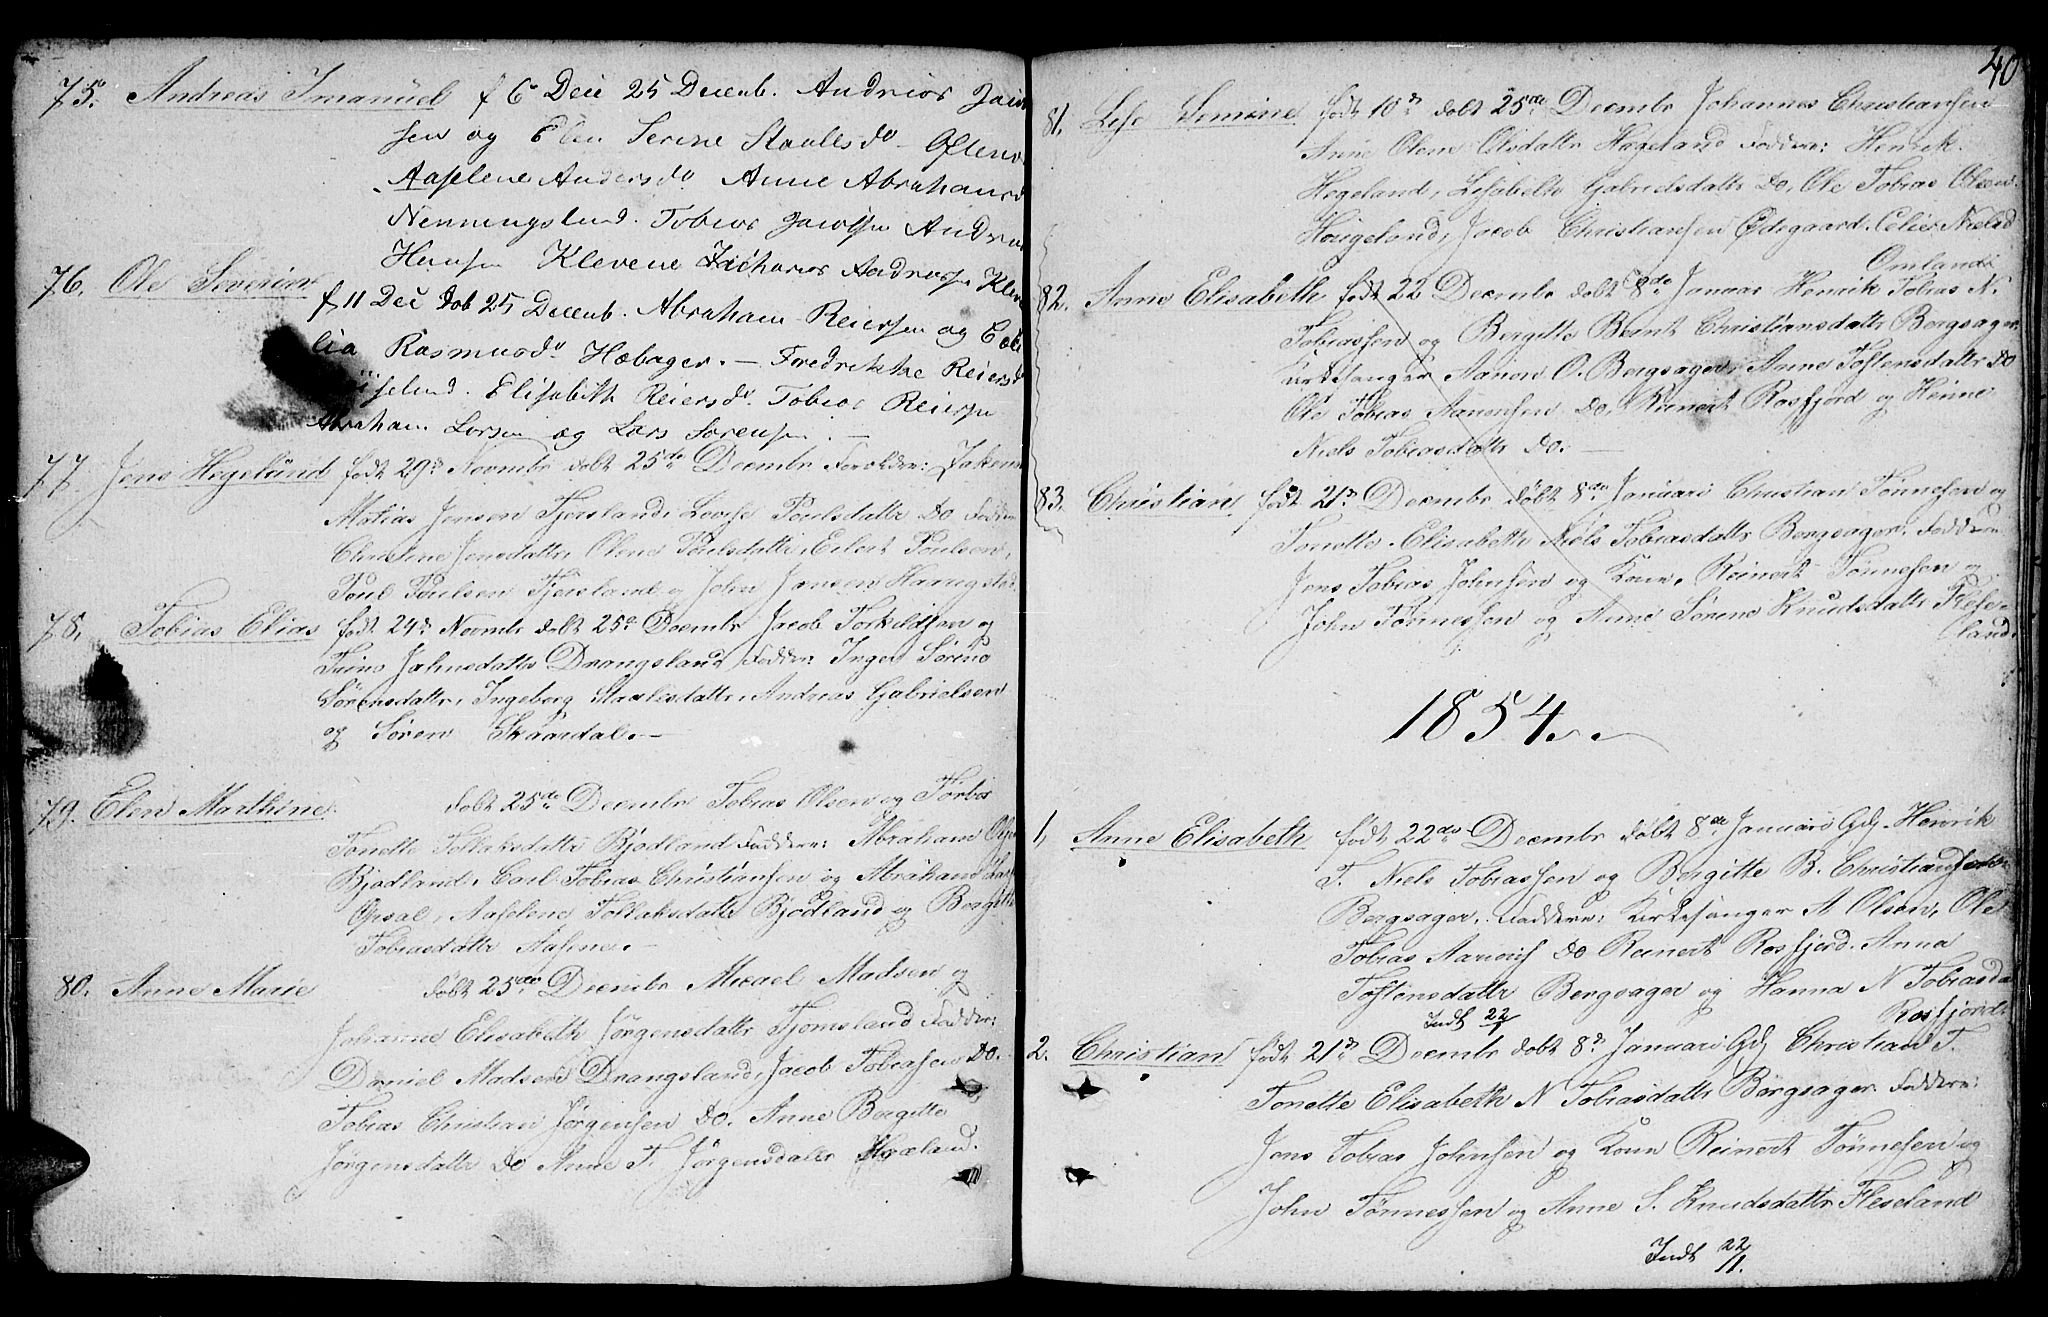 75. Andreas Imanuel f 6 Dec 25 Decemb. Andreas
sen og Elen Serine Staalesdr
Aaselene Andersdr Anne Abrahamsd
Nenningsland. Tobias Jacobsen Andreas
Hansen Klevene Zacharias Andreasen Klev
76. Ole Severin
f 11 Dec døb 25 Decemb. Abraham Reiersen og
lia Rasmusdr Hæbager. — Fredrikke Reiersd
Elisabeth Reiersdr. Tobias Reiersen
Abraham Larsen og Lars Sørensen. —
77. Jens Hegeland født 29d Novmbr døbt 25de Decembr Forældre:
Matias Jensen Tjersland, Lovise Poulsdattr Do Faddere
Christine Jensdattr, Olene Poulsdattr, Eilert Poulsen,
Poul Poulsen Tjersland og John Jansen Haaugstad
78. Tobias Elias født 24d Novmbr døbt 25d Decembr Jacob Torkildsen og
Johnsdattr Drangsland Faddere: Inger Sørine
Sørensdattr, Ingeborg Staalesdattr, Andreas Gabrielsen
og Søren Skaardal. —
79. Elen Marthine døbt 25de Decembr Tobias Olsen og
Tonette Tollaksdattr Bjødland Faddere: Abraham
Bjødland, Carl Tobias Christiansen og Abraham
Opsal, Aaselene Tollaksdattr Bjødland og Bergitte
Tobiasdattr Aasene. —
80. Anne Marie døbt 25de Decembr Micael Madsen og
Johanne Elisabeth Jørgensdattr Tjomsland Faddere:
Daniel Madsen Drangsland, Jacob Tobiasen Do.
Tobias Christian Jørgensen Do. Anne Bergitte
Jørgensdattr Do Anne T. Jørgensdattr Hæeland.
40
81. Lese Semine født 10d døbt 25de Decembr Johannes Christiansen
Anne Olene Olsdattr Hægeland Faddere: Henrik
Hegeland, Lisabeth Gabrielsdattr Do, Ole Tobias Olsen
Høigeland, Jacob Christiansen Ødegaard
Omland
82. Anne Elisabeth født 22 Decembr døbt 8de Januar Henrik Tobias N.
Tobiassen og Bergitte Bernt Christiansdattr Bergsager
Kirkesanger Aanon O. Bergsager, Anne Tostensdattr Do
Ole Tobias Aanonsen Do, Reinert Rosfjord og Henne
Niels Tobiasdattr Do. —
83. Christian født 21d Decembr døbt 8de Januari Christian Tønnesen og
Tonette Elisabeth Niels Tobiasdattr Bergsager, Faddere
Jens Tobias Johnsen og Kone, Reinert Tønnesen og
John Tønnessen og Anne Sørene Knudsdattr Flese-
land.
1854.
1, Anne Elisabeth født 22de Decembr døbt 8de Januari Gdj. Henrik
T. Niels Tobiassen og Bergitte B. Christiansdatter
Bergsager. Faddere: Kirkesanger A Olsen, Ole
Tobias Do Reinert Rosfjord. Anna
Tostensdattr Bergsager og Hanna N Tobiasda
Rosfjord.
Indt 22/1
2. Christian født 21d Decembr døbt 8d Januari Gdj Christian T.
Tonette Elisabeth N Tobiasdattr Bergsager Faddere:
Jens Tobias Johnsen og Kone Reinert Tønnesen og
John Tønnessen og Anne S. Knudsdattr Fleseland
Indt 22/1.